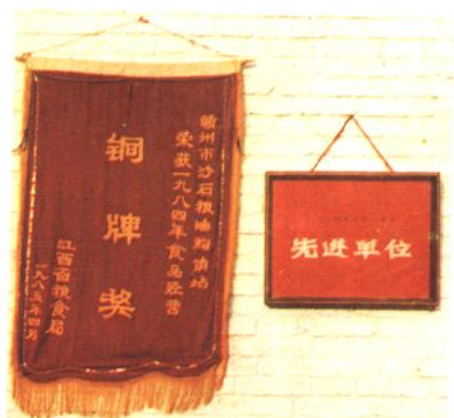 赣州市沙石粮油购销站
荣获一九八四年食品经营
铜牌奖
江西省粮食局
一九八五年四月
先进单位